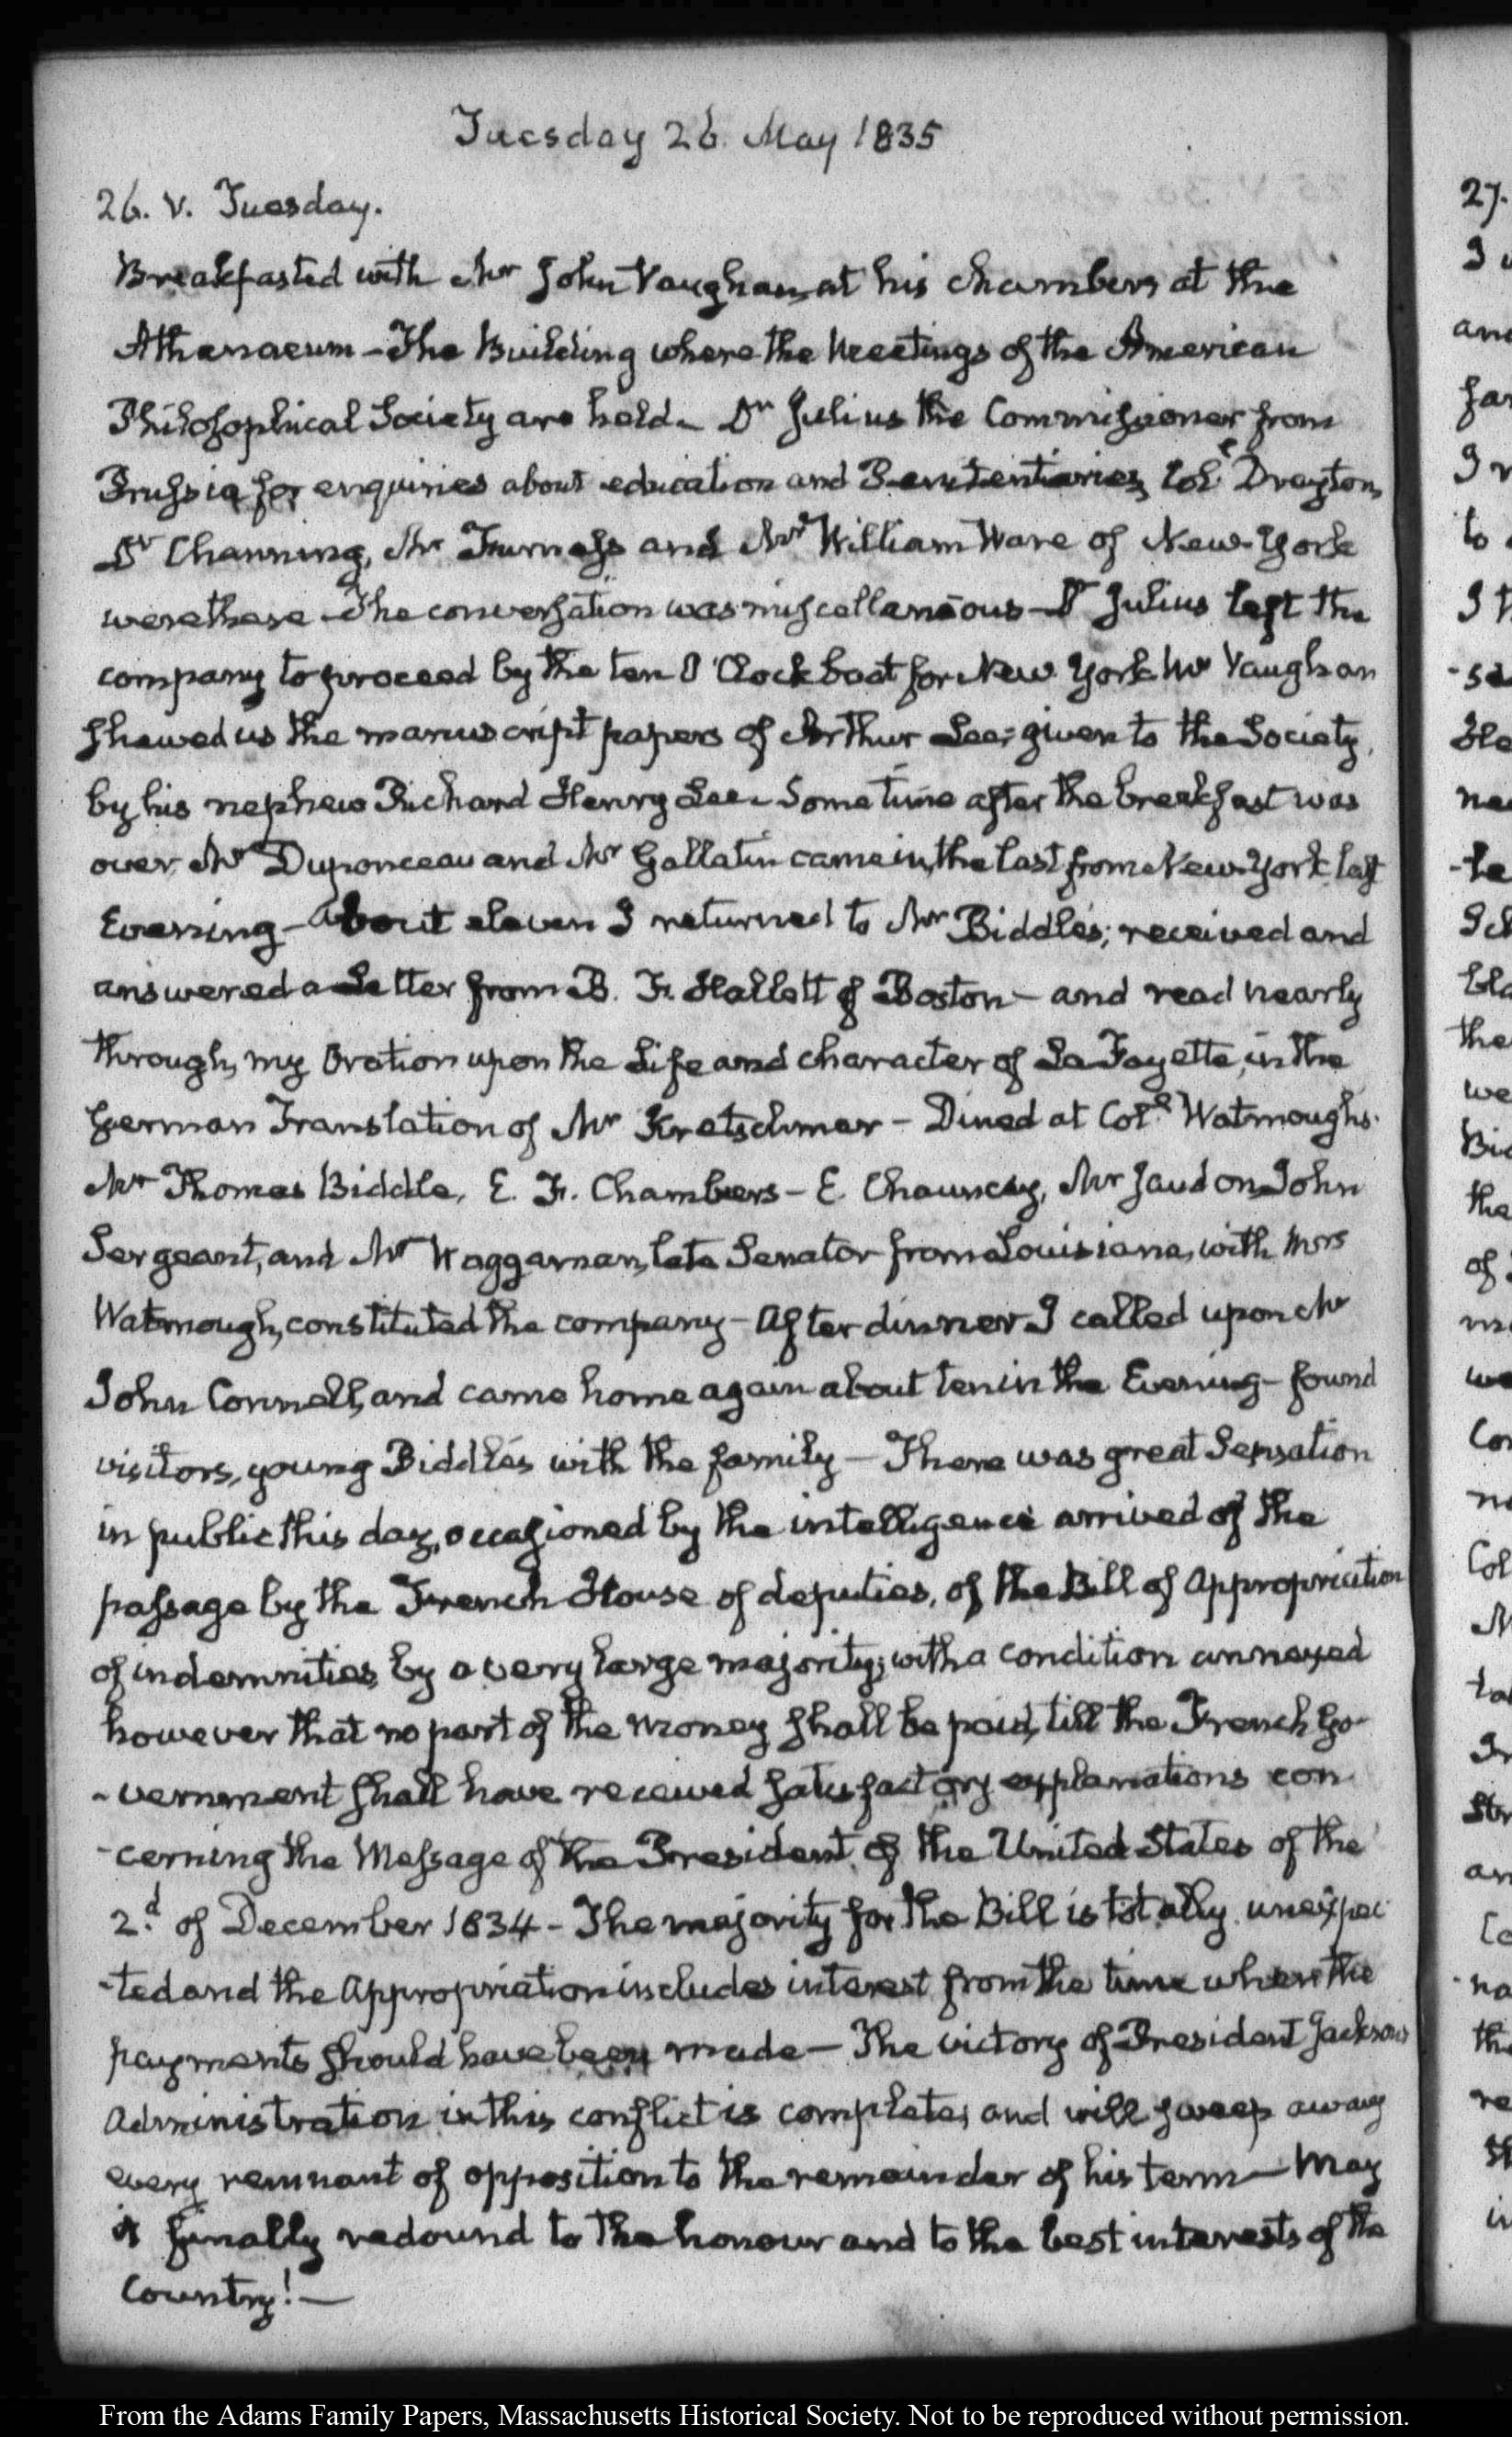 Tuesday 26. May 1835
26. V. Tuesday.
Breakfasted with Mr John Vaughan, at his chambers at the
Athenaeum – The Building where the Meetings of the American
Philosophical Society are held – Dr Julius the Commissioner from
Prussia for enquiries about education and Penitentiaries, Coll Drayton,
Dr Channing, Mr Furness and Mr William Ware of New-York
were there – The conversation was miscellaneous – Dr Julius left the
company to proceed by the ten O'Clock boat for New York Mr Vaughan
shewed us the manuscript papers of Arthur Lee; given to the Society,
by his nephew Richard Henry Lee – Some time after the breakfast was
over, Mr Duponceau and Mr Gallatin came in, the last from New-York last
Evening – About eleven I returned to Mr Biddle's; received and
answered a Letter from B. F. Hallett of Boston – and read nearly
through, my Oration upon the Life and character of La Fayette, in the
German Translation of Mr Kretschmar – Dined at Coll Watmough's.
Mr Thomas Biddle, E. F. Chambers – E. Chauncey, Mr Jaudon, John
Sergeant, and Mr Waggaman, late Senator from Louisiana, with Mrs
Watmough, constituted the company – After dinner I called upon Mr
John Connell, and came home again about ten in the Evening – found
visitors, young Biddles with the family – There was great Sensation
in public this day, occasioned by the intelligence arrived of the
passage by the French House of deputies, of the Bill of Appropriation
of indemnities, by a very large majority; with a condition annexed
however that no part of the money shall be paid, till the French Go-
-vernment shall have received satisfactory explanations con
-cerning the Message of the President of the United States of the
2.d of December 1834 – The majority for the Bill is totally unexpec
-ted and the Appropriation includes interest from the time when the
payments should have been made – The victory of President Jackson's
Administration in this conflict is complete, and will sweep away
every remnant of opposition to the remainder of his term – May
it finally redound to the honour and to the best interests of the
Country! –
27.
I
and
far
I
to
I
we
the
of
From the Adams Family Papers, Massachusetts Historical Society. Not to be reproduced without permission.